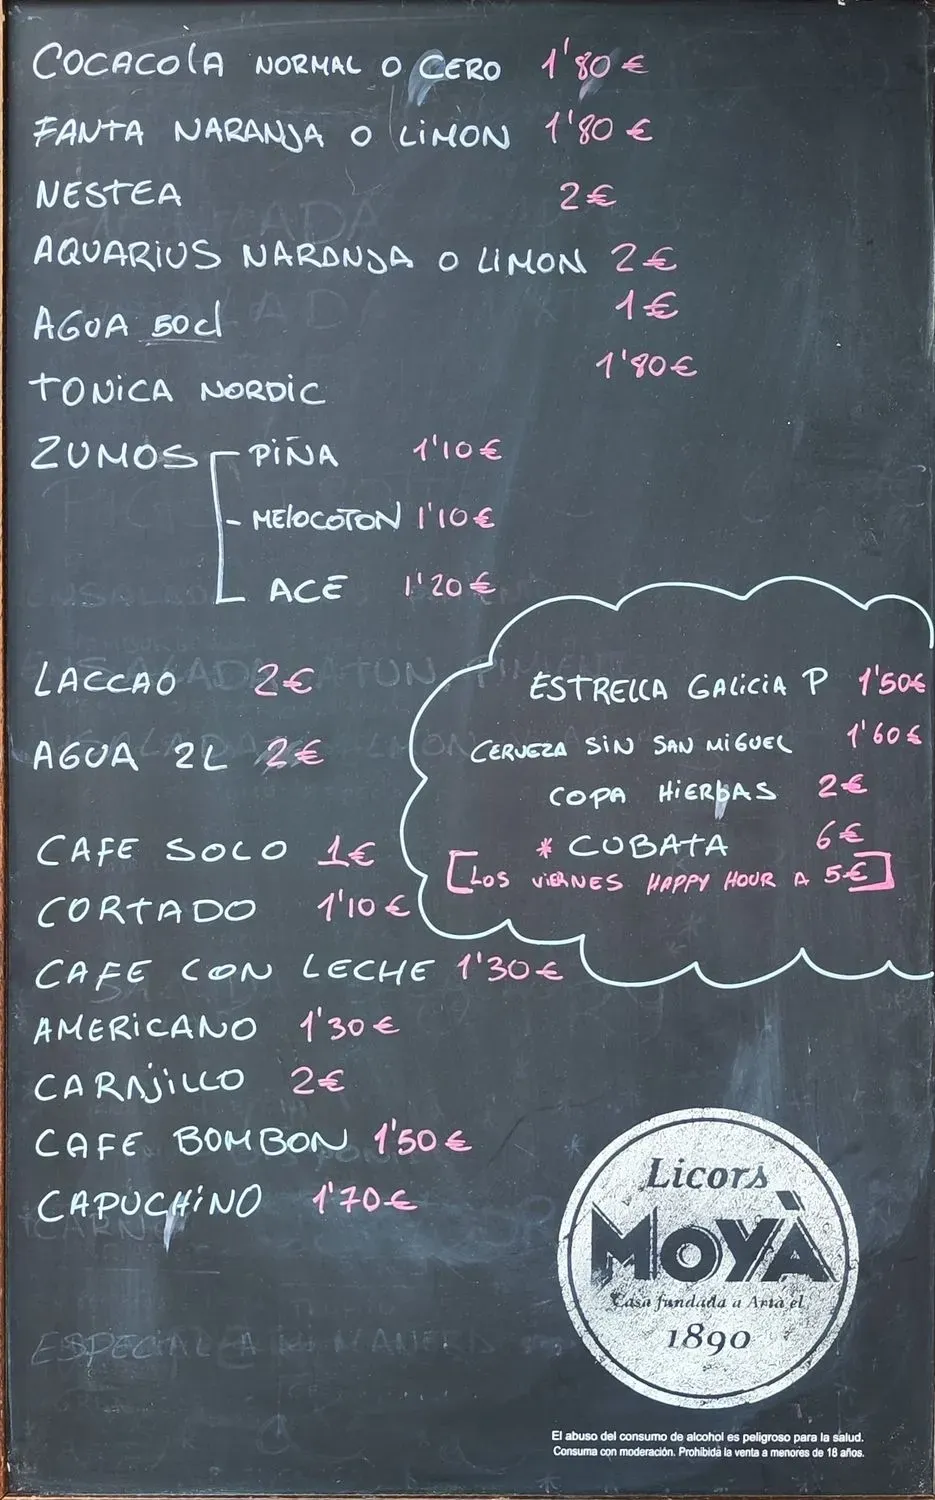 COCACOLA NORMAL O CERO 1'80 €
FANTA NARANJA O LIMON 1'80 €
NESTEA 2€
AQUARIUS NARANJA O LIMON 2€
AGUA 50cl 1€
TONICA NORDIC 1'80€
ZUMOS - PIÑA 1'10€
- MELOCOTON 1'10€
ACE 1'20€
LACCAO 2€
AGUA 2L 2€
CAFE SOLO 1€
CORTADO 1'10€
CAFE CON LECHE 1'30€
AMERICANO 1'30€
CARAJILLO 2€
CAFE BOMBON 1'50€
CAPUCHINO 1'70€
ESTRELLA GALICIA P 1'50€
CERVEZA SIN SAN MIGUEL 1'60€
COPA HIERBAS 2€
* CUBATA 6€
[LOS VIERNES HAPPY HOUR A 5€]
Licors
MOYÀ
Casa fundada a Artà el
1890
El abuso del consumo de alcohol es peligroso para la salud.
Consuma con moderación. Prohibida la venta a menores de 18 años.